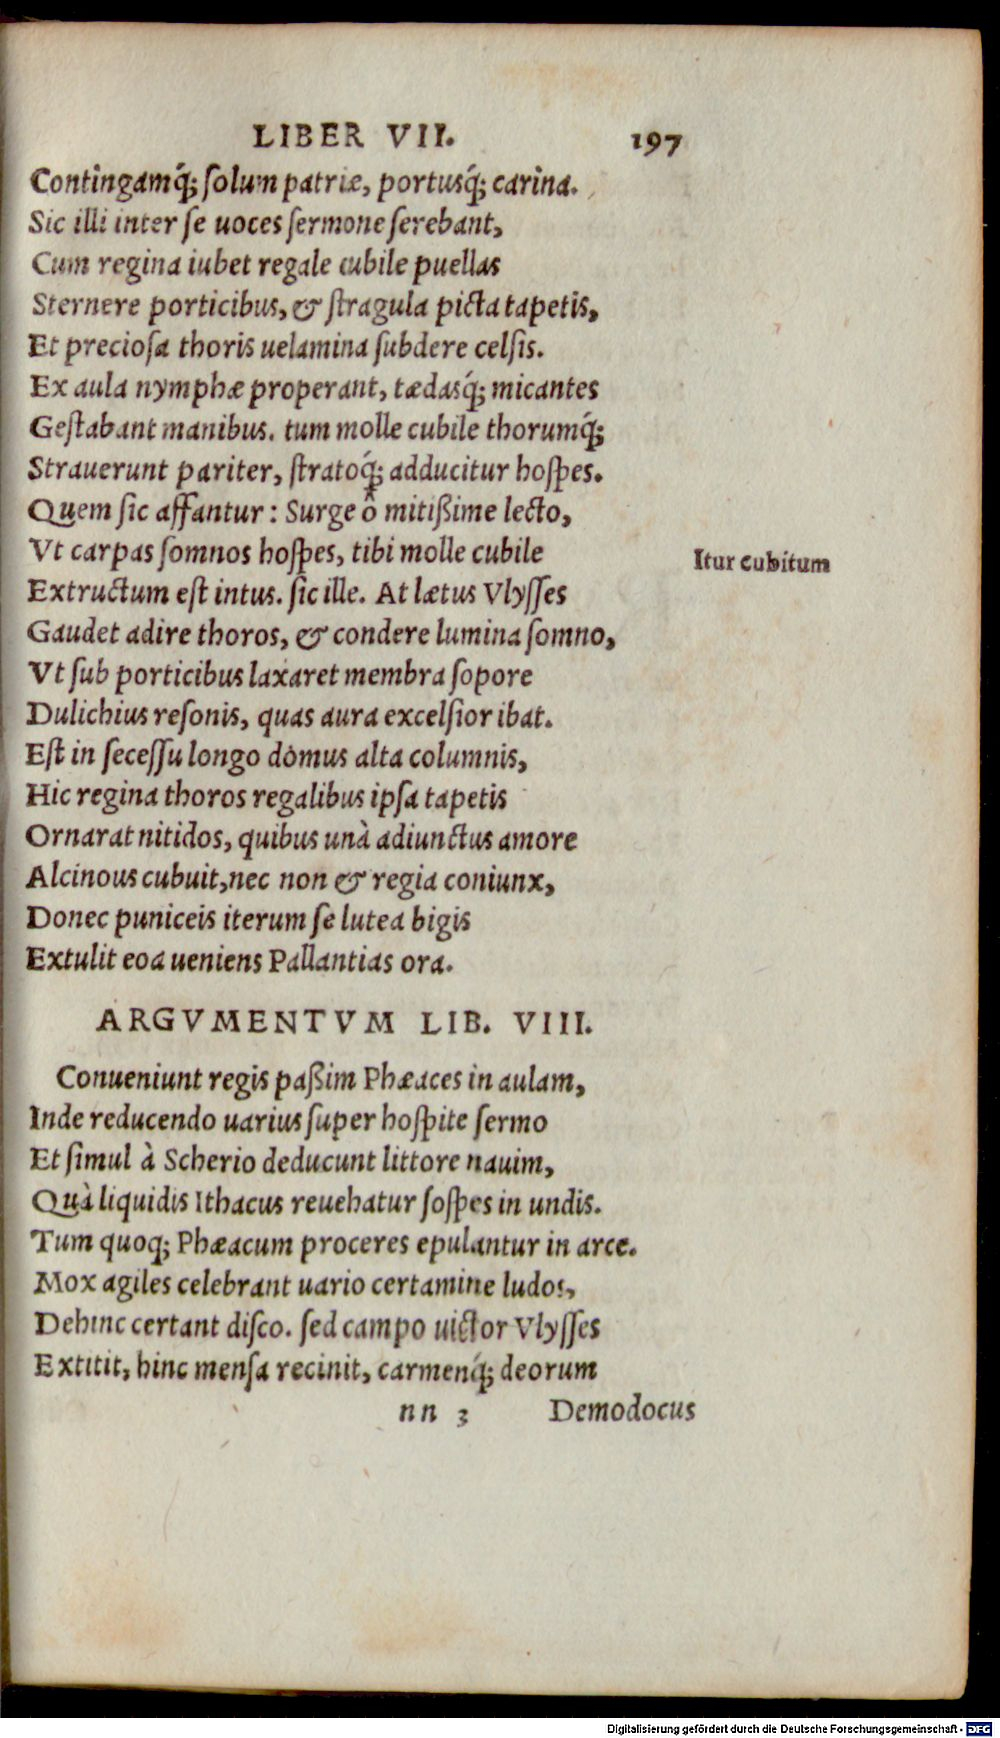 LIBER VII. 197
Contingamq́; solum patriæ, portusq́; carina.
Sic illi inter se uoces sermone serebant,
Cum regina iubet regale cubile puellas
Sternere porticibus, & stragula picta tapetis,
Et preciosa thoris uelamina subdere celsis.
Ex aula nymphæ properant, tædasq́; micantes
Gestabant manibus. tum molle cubile thorumq́;
Strauerunt pariter, stratoq́; adducitur hospes.
Quem sic affantur: Surge ô mitißime lecto,
Vt carpas somnos hospes, tibi molle cubile
Itur cubitum
Extructum est intus. sic ille. At lætus Vlysses
Gaudet adire thoros, & condere lumina somno,
Vt sub porticibus laxaret membra sopore
Dulichius resonis, quas aura excelsior ibat.
Est in secessu longo domus alta columnis,
Hic regina thoros regalibus ipsa tapetis
Ornarat nitidos, quibus unà adiunctus amore
Alcinous cubuit, nec non & regia coniunx,
Donec puniceis iterum se lutea bigis
Extulit eoa ueniens Pallantias ora.
ARGVMENTVM LIB. VIII.
Conueniunt regis paßim Phæaces in aulam,
Inde reducendo uarius super hospite sermo
Et simul à Scherio deducunt littore nauim,
Quà liquidis Ithacus reuehatur sospes in undis.
Tum quoq; Phæacum proceres epulantur in arce.
Mox agiles celebrant uario certamine ludos,
Dehinc certant disco. sed campo uictor Vlysses
Extitit, hinc mensa recinit, carmenq́; deorum
nn 3 Demodocus
Digitalisierung gefördert durch die Deutsche Forschungsgemeinschaft - DFG